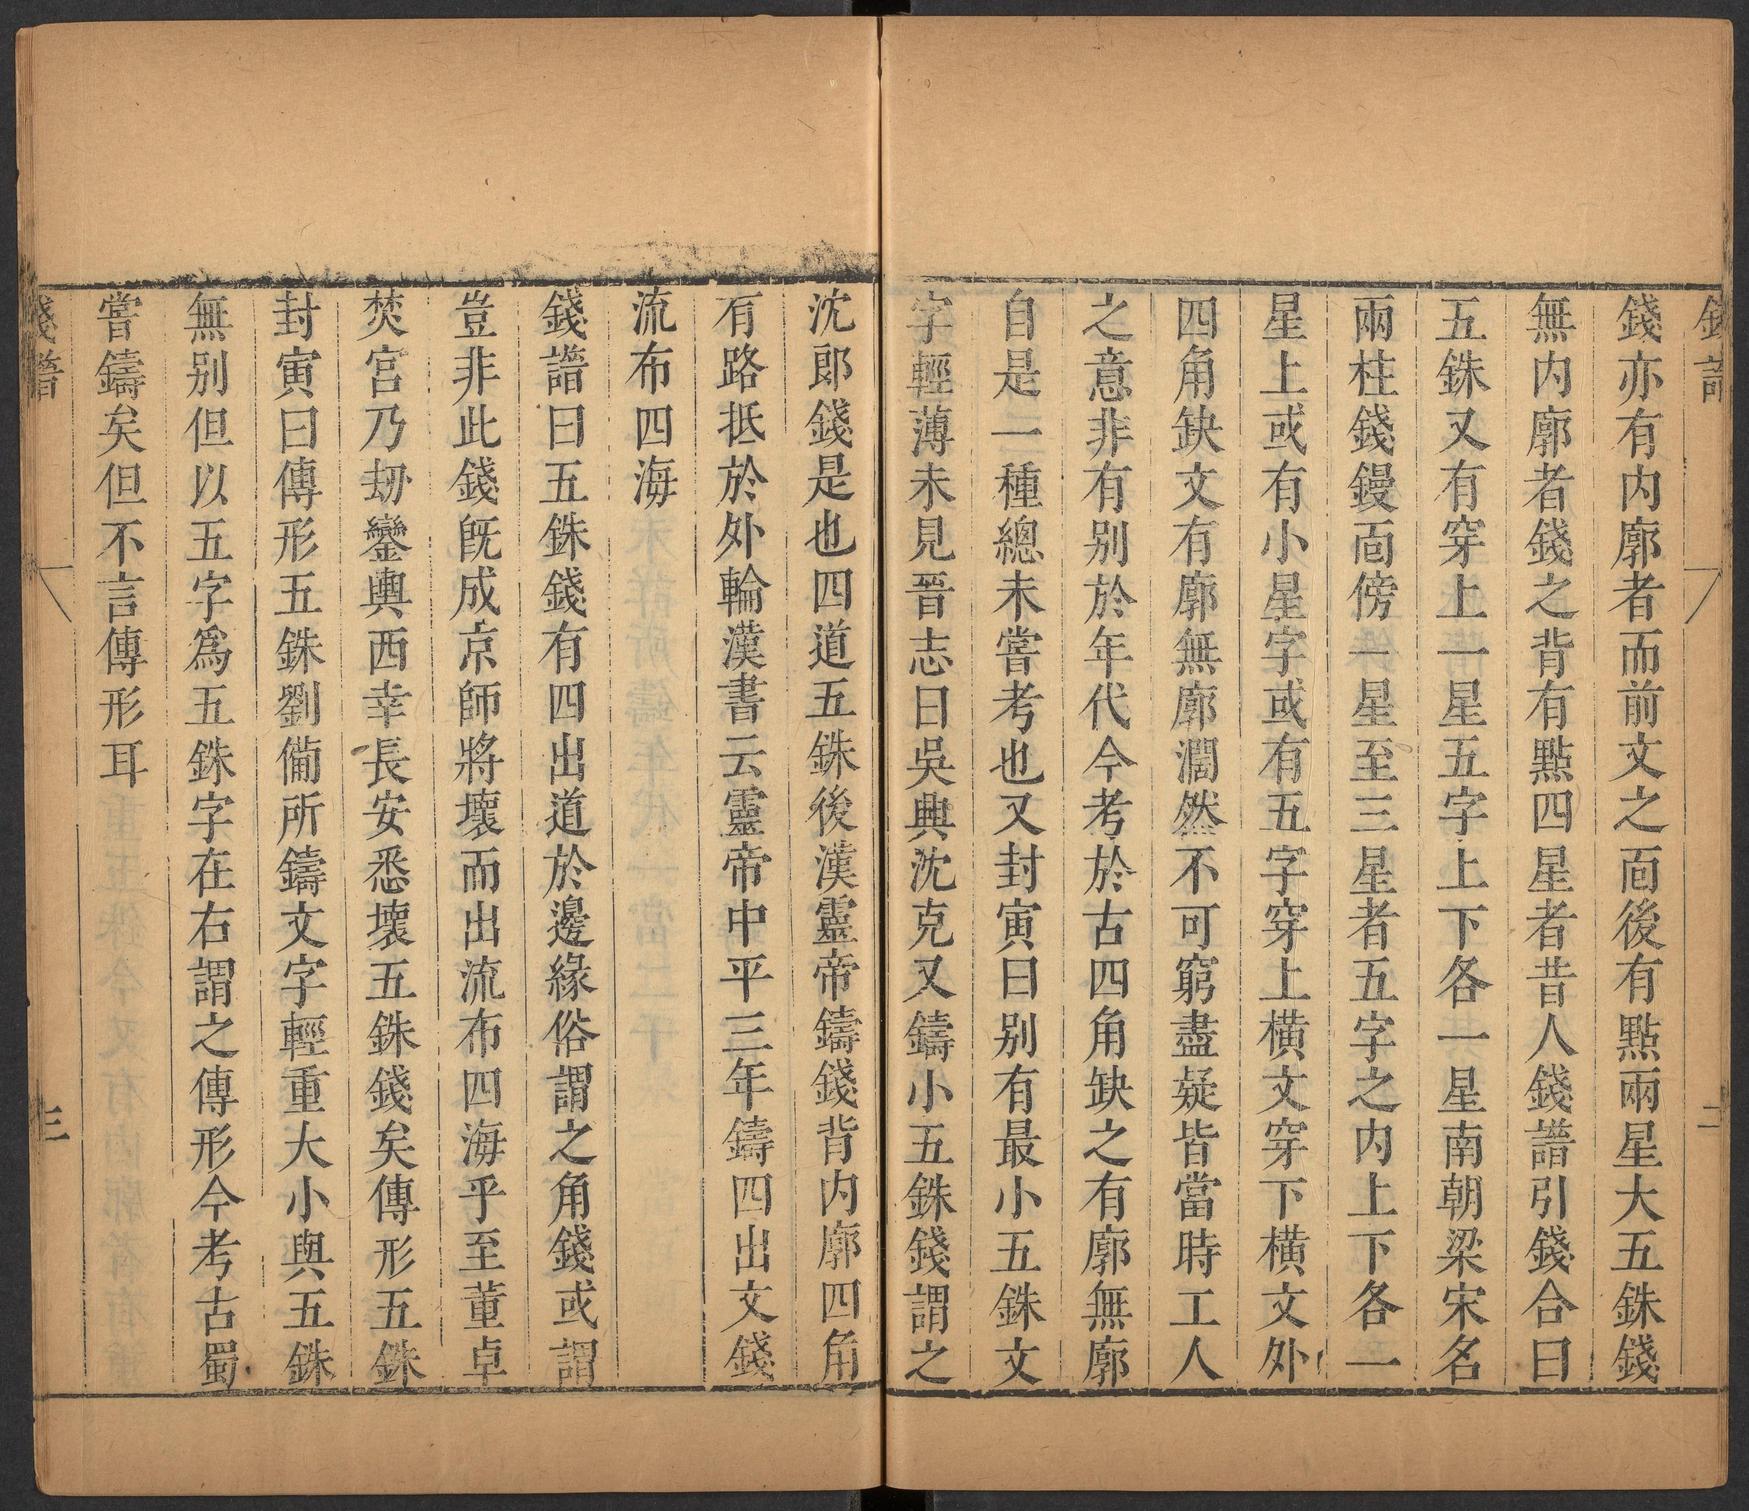 錢譜
二
錢亦有内廓者而前文之靣後有點兩星大五銖錢
無内廓者錢之背有點四星者昔人錢譜引錢合曰
五銖又有穿上一星五字上下各一星南朝梁宋名
兩柱錢鏝靣傍一星至三星者五字之内上下各一
星上或有小星字或有五字穿上橫文穿下橫文外
四角缺文有廓無廓濶然不可窮盡疑皆當時工人
之意非有别於年代今考於古四角缺之有廓無廓
自是一種總未嘗考也又封寅曰别有最小五銖文
字輕薄未見晉志曰吳興沈克又鑄小五銖錢謂之
沈郎錢是也四道五銖後漢靈帝鑄錢背内廓四角
有路抵於外輪漢書云靈帝中平三年鑄四出文錢
流布四海
錢譜曰五銖錢有四出道於邊緣俗謂之角錢或謂
豈非此錢既成京師將壞而出流布四海乎至董卓
焚宮乃刼鑾輿西幸長安悉壞五銖錢矣傳形五銖
封寅曰傳形五銖劉備所鑄文字輕重大小與五銖
無别但以五字爲五銖字在右謂之傳形今考古蜀
嘗鑄矣但不言傳形耳
錢譜
三